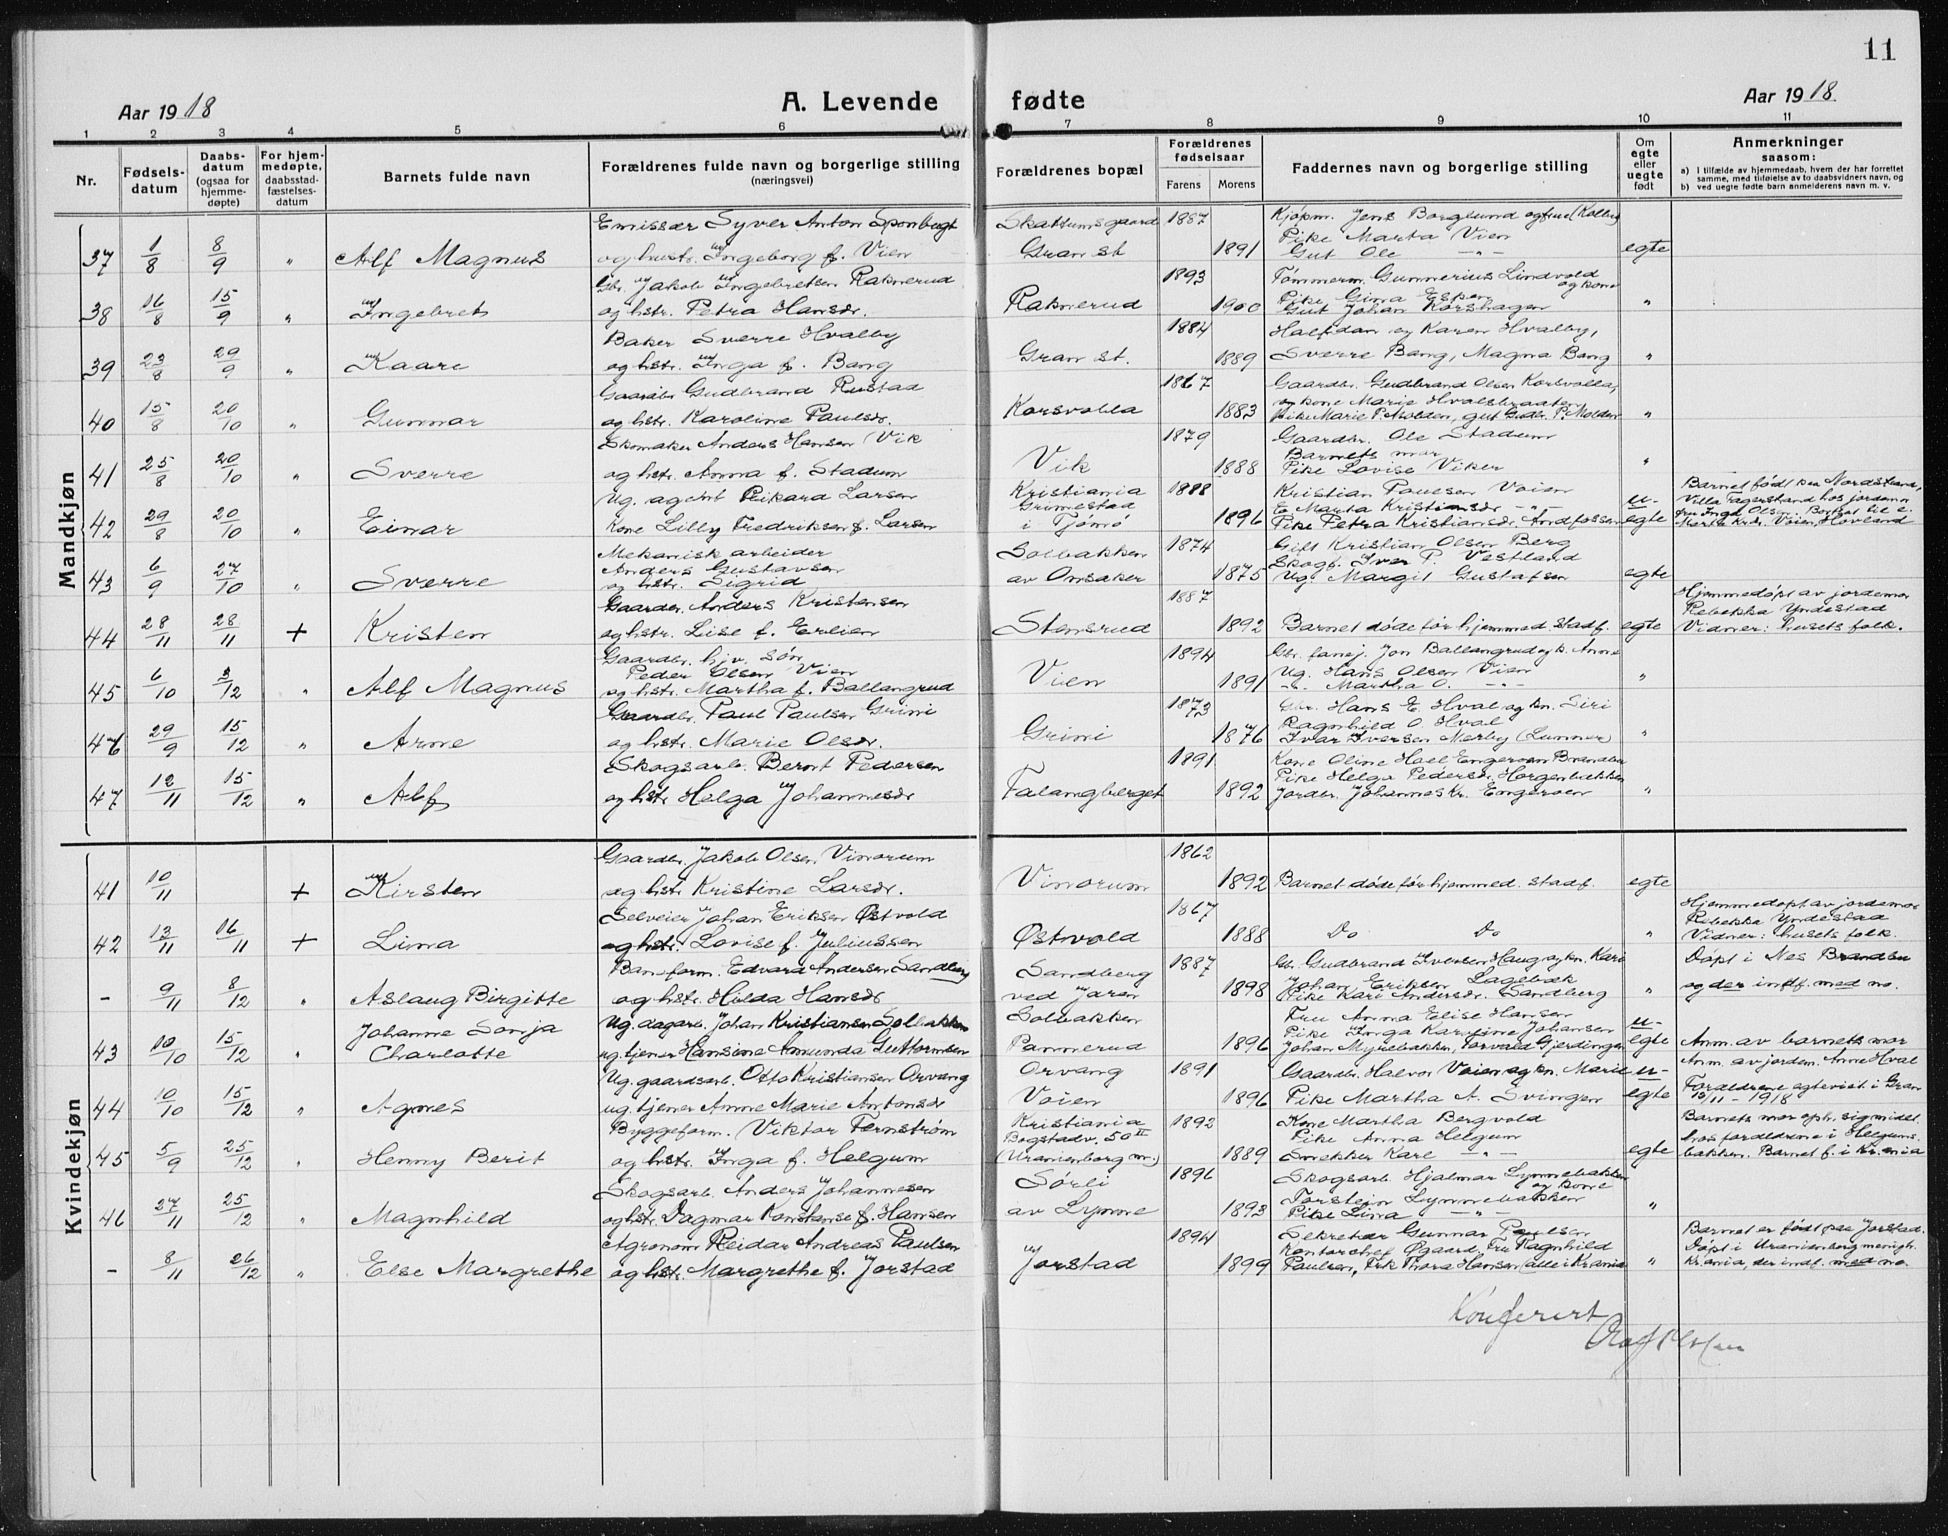 11
Aar 1918
A. Levende fødte
Aar 1918.
1 2 3 4 5 6 7 8 9 10 11
Nr.
Fødsels-datum
Daabs-datum (ogsaa for hjemme-døpte)
For hjem-medøpte, daabsstad-fæstelses-datum
Barnets fulde navn
Forældrenes fulde navn og borgerlige stilling (næringsvei)
Forældrenes bopæl
Forældrenes fødselsaar
Farens Morens
Faddernes navn og borgerlige stilling
Om egte eller uegte født
Anmerkninger saasom:
a) I tilfælde av hjemmedaab, hvem der har forrettet samme, med tilføielse av to daabsvidners navn, og
b) ved uegte fødte barn anmelderens navn m. v.
Mandkjøn
Emissær Syver Anton Sponbugt Skattumsgaard 1887 Kjøpm. Jens Borglund og frue (Kolby)
Pike Marta Vien
37 1/8 8/9 " Alf Magnus og hustr. Ingeborg f. Vien Gran st 1891 Gut Ole -"- egte
Gbr. Jakob Ingebretsen Raknerud 1893 Tømmerm. Gunnerius Lindvold og kone
Pike Gina Espen
38 16/8 15/9 " Ingebret og hstr. Petra Hansdr. Raknerud 1900 Gut Johan Korshagen "
Baker Sverre Hvalby 1884 Halfdan og Karen Hvalby,
39 23/8 29/9 " Kaare og hstr. Inga f. Bang Gran st. 1889 Sverre Bang, Magna Bang "
Gaardbr. Gudbrand Rustad 1867 Gaardbr. Gudbrand Olsen Korsvolla,
og kone Marie Hvalsbraaten
40 15/8 20/10 " Gunnar og hstr. Karoline Paulsdr. Korsvolla 1883 Pike Marie P. Molden, gut Gudbr. P. Molden "
Skomaker Anders Hansen Vik 1879 Gaardbr. Ole Stadum
Barnets mor
41 25/8 20/10 " Sverre og hstr. Anna f. Stadum Vik 1888 Pike Lovise Viker "
Ug. agent Rikard Larsen Kristiania 1888 Kristian Paulsen Voien Barnet født paa Nordstrand,
Grimestad E Marta Kristiansdr -"- u- Villa Fagerstrand hos jordemor
42 29/8 20/10 " Einar Kone Lilly Fredriksen f. Larsen i Tjømø 1896 Pike Petra Kristiansdr Andfossen egte fru Inga Olsen. Bortsat til E.
Marta Krdr. Voien, Hovland
Mekanisk arbeider Solbakken 1874 Gift Kristian Olsen Berg
Anders Gustavsen Skogf. Iver P. Vestland
43 6/9 27/10 " Sverre og hstr. Sigrid av Onsaker 1875 Ug. Margit Gustafsen egte
Gaardbr. Anders Kristensen 1887 Hjemmedøpt av jordemor
Rebekka Yndestad
44 28/11 28/11 + Kristen og hstr. Lise f. Erlien Stensrud 1892 Barnet døde før hjemmed. stadf. egte Vidner: husets folk.
Gaardbr. hjv. søn 1894 Gbr. fanej. Jon Ballangrud og k. Anne
Peder Olsen Vien Ug. Hans Olsen Vien
45 6/10 3/12 " Alf Magnus og hstr. Martha f. Ballangrud Vien 1891 -"- Martha O. -"- "
Gaardbr. Paul Paulsen Grini 1873 Gbr. Hans E. Hval og kn. Siri
Ragnhild O. Hval
46 29/9 15/12 " Arne og hstr. Marie Olsdr. Grini 1876 Ivar Iversen Mæhy (Lunner) "
Skogsarb. Bernt Pedersen 1891 Kone Oline Hoel Engeroen Brandbu
Pike Helga Pedersdr. Horgenbakken
47 12/11 15/12 " Alf og hstr Helga Johannesdr Falangberget 1892 Jordbr. Johannes Kr. Engeroen "
Kvindekjøn
Gaardbr. Jakob Olsen Vinorum 1862
41 10/11 + Kirsten og hstr Kristine Larsdr. Vinorum 1892 Barnet døde før hjemmed. stadf. egte
Selveier Johan Eriksen Østvold 1867 Hjemmedøpt av jordemor
Rebekka Yndestad
42 13/11 16/11 + Lina og hstr. Lovise f. Juliussen Østvold 1888 Do Do " Vidner: husets folk.
Baneform. Edvard Andersen Sandberg Sandberg 1887 Gbr. Gudbrand Iversen Haug og kn. Kari Døpt i Nes Brandbu
Johan Eriksen Lagebæk
- 9/11 8/12 " Aslaug Birgitte og hstr. Hilda Hansdr ved Jaren 1898 Pike Kari Andersdr. Sandberg " og der indf. med no.
Johanne Sonja Ug. dagarb. Johan Kristiansen Solbakken Solbakken Fru Anna Elise Hansen
Pike Inga Karoline Johansen u-
43 10/10 15/12 " Charlotte ug. tjener Hansine Amunda Guttormsen Pannerud 1896 Johan Myrebakken, Torvald Gjerdingen egte Anm. av barnets mor
Ug. gaardsarb. Otto Kristiansen Orvang Orvang 1891 Gaardbr. Halvor Voien og kn. Marie u- Anm. av jordem. Anne Hval
Forældrene egteviet i Gran
44 10/10 15/12 " Agnes ug. tjener Anne Marie Antonsdr Voien 1896 Pike Martha A. Svingen egte 15/11 - 1918
Byggeform. Viktor Fernstrøm Kristiania 1892 Kone Martha Bergvold Barnets mor oph. sig midlt.
Bogstadv. 50 II Pike Anna Helgum hos forældrene i Helgums-
45 5/9 25/12 " Henny Berit og hstr. Inga f. Helgum (Uranienborg m.) 1889 Snekker Karl -"- egte bakken. Barnet f. i Kr.ania
Skogsarb. Anders Johannesen Sørli 1896 Skogsarb. Hjalmar Lynnebakken og kone
Torstein Lynnebakken
46 27/11 25/12 " Magnhild og hstr. Dagmar Konstanse f. Hansen av Lynne 1893 Pike Lina -"- "
Agronom Reidar Andreas Paulsen 1894 Sekretær Gunnar Paulsen Barnet er født paa Jorstad.
Kontorchef Øgaard, Fru Ragnhild Døpt i Uranienborg menigh.
- 8/11 26/12 " Else Margrethe og hstr. Margrethe f. Jorstad Jorstad 1899 Paulsen, Frk Thora Hansen (alle i Krania " Kr.ania, der indf. med no.
Konferert
Olaf Olsen